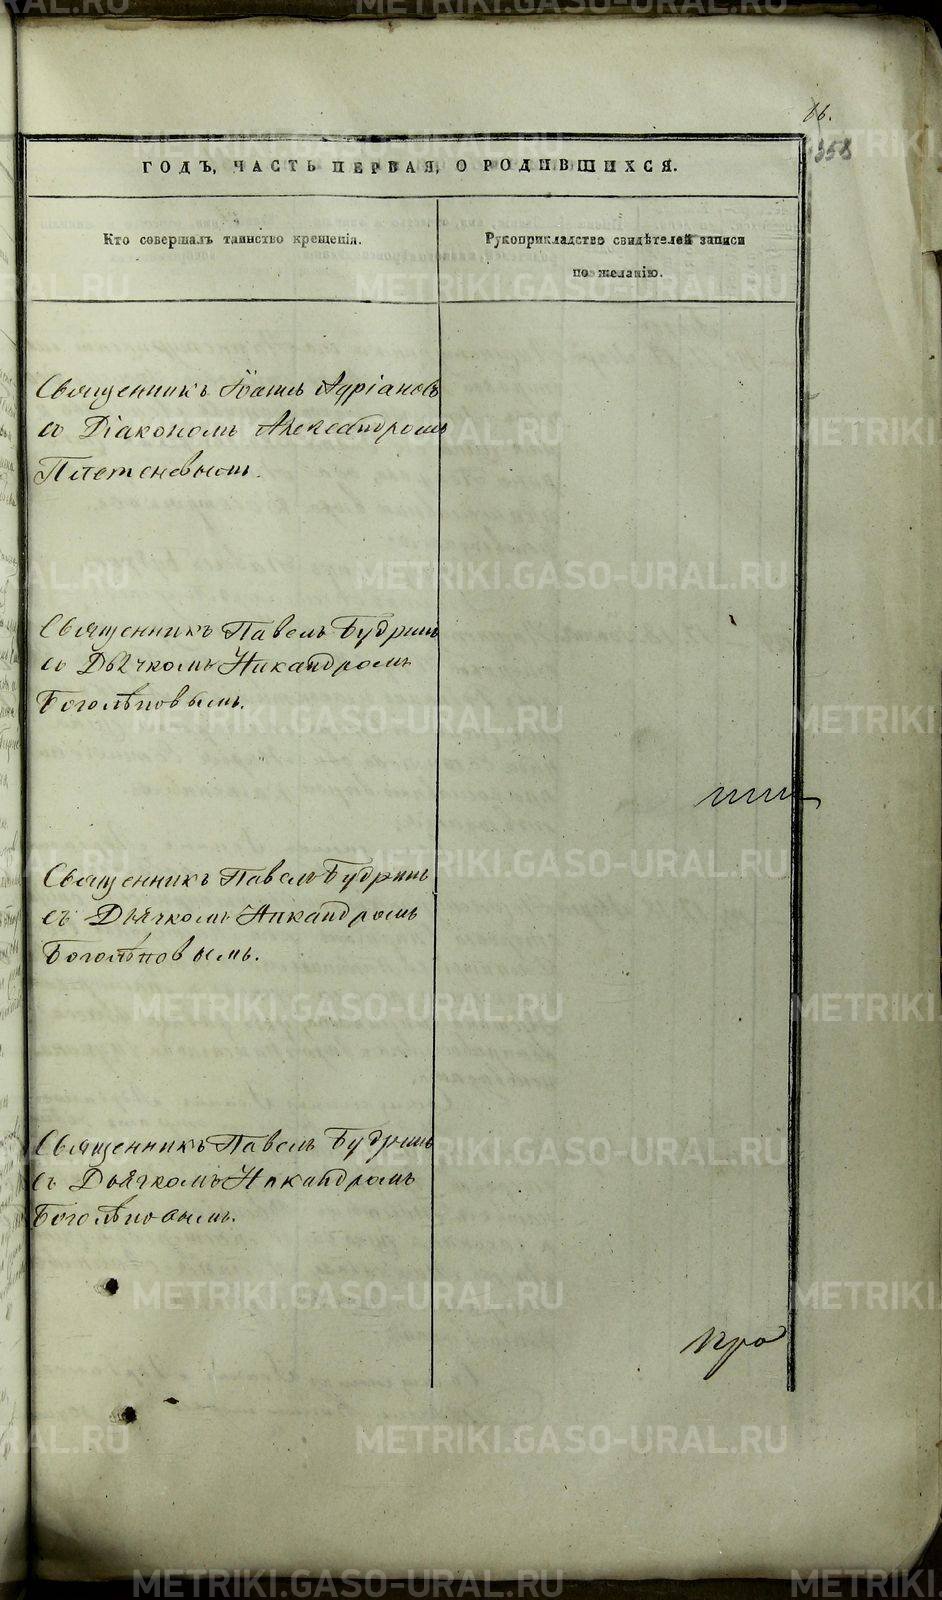 66.
358
ГОДЪ, ЧАСТЬ ПЕРВАЯ, О РОДИВШИХСЯ.
Кто совершалъ таинство крещенія.
Рукоприкладство свидѣтелей записи
по желанію.
Священникъ Іоаннъ Адріановъ
со Діакономъ Александромъ
Плетеневымъ.
Священникъ Павелъ Будринъ
со Дьячкомъ Никандромъ
Боголѣповымъ.
Священникъ Павелъ Будринъ
съ Дьячкомъ Никандромъ
Боголѣповымъ.
Священникъ Павелъ Будринъ
съ Дьячкомъ Никандромъ
Боголѣповымъ.
METRIKI.GASO-URAL.RU